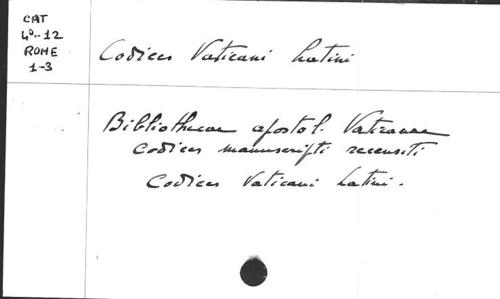 CAT
4º..12
ROME
1-3
Codices Vaticani Latini
Bibliothecae apostol. Vaticanae
codices manuscripti recensiti
Codices Vaticani Latini.